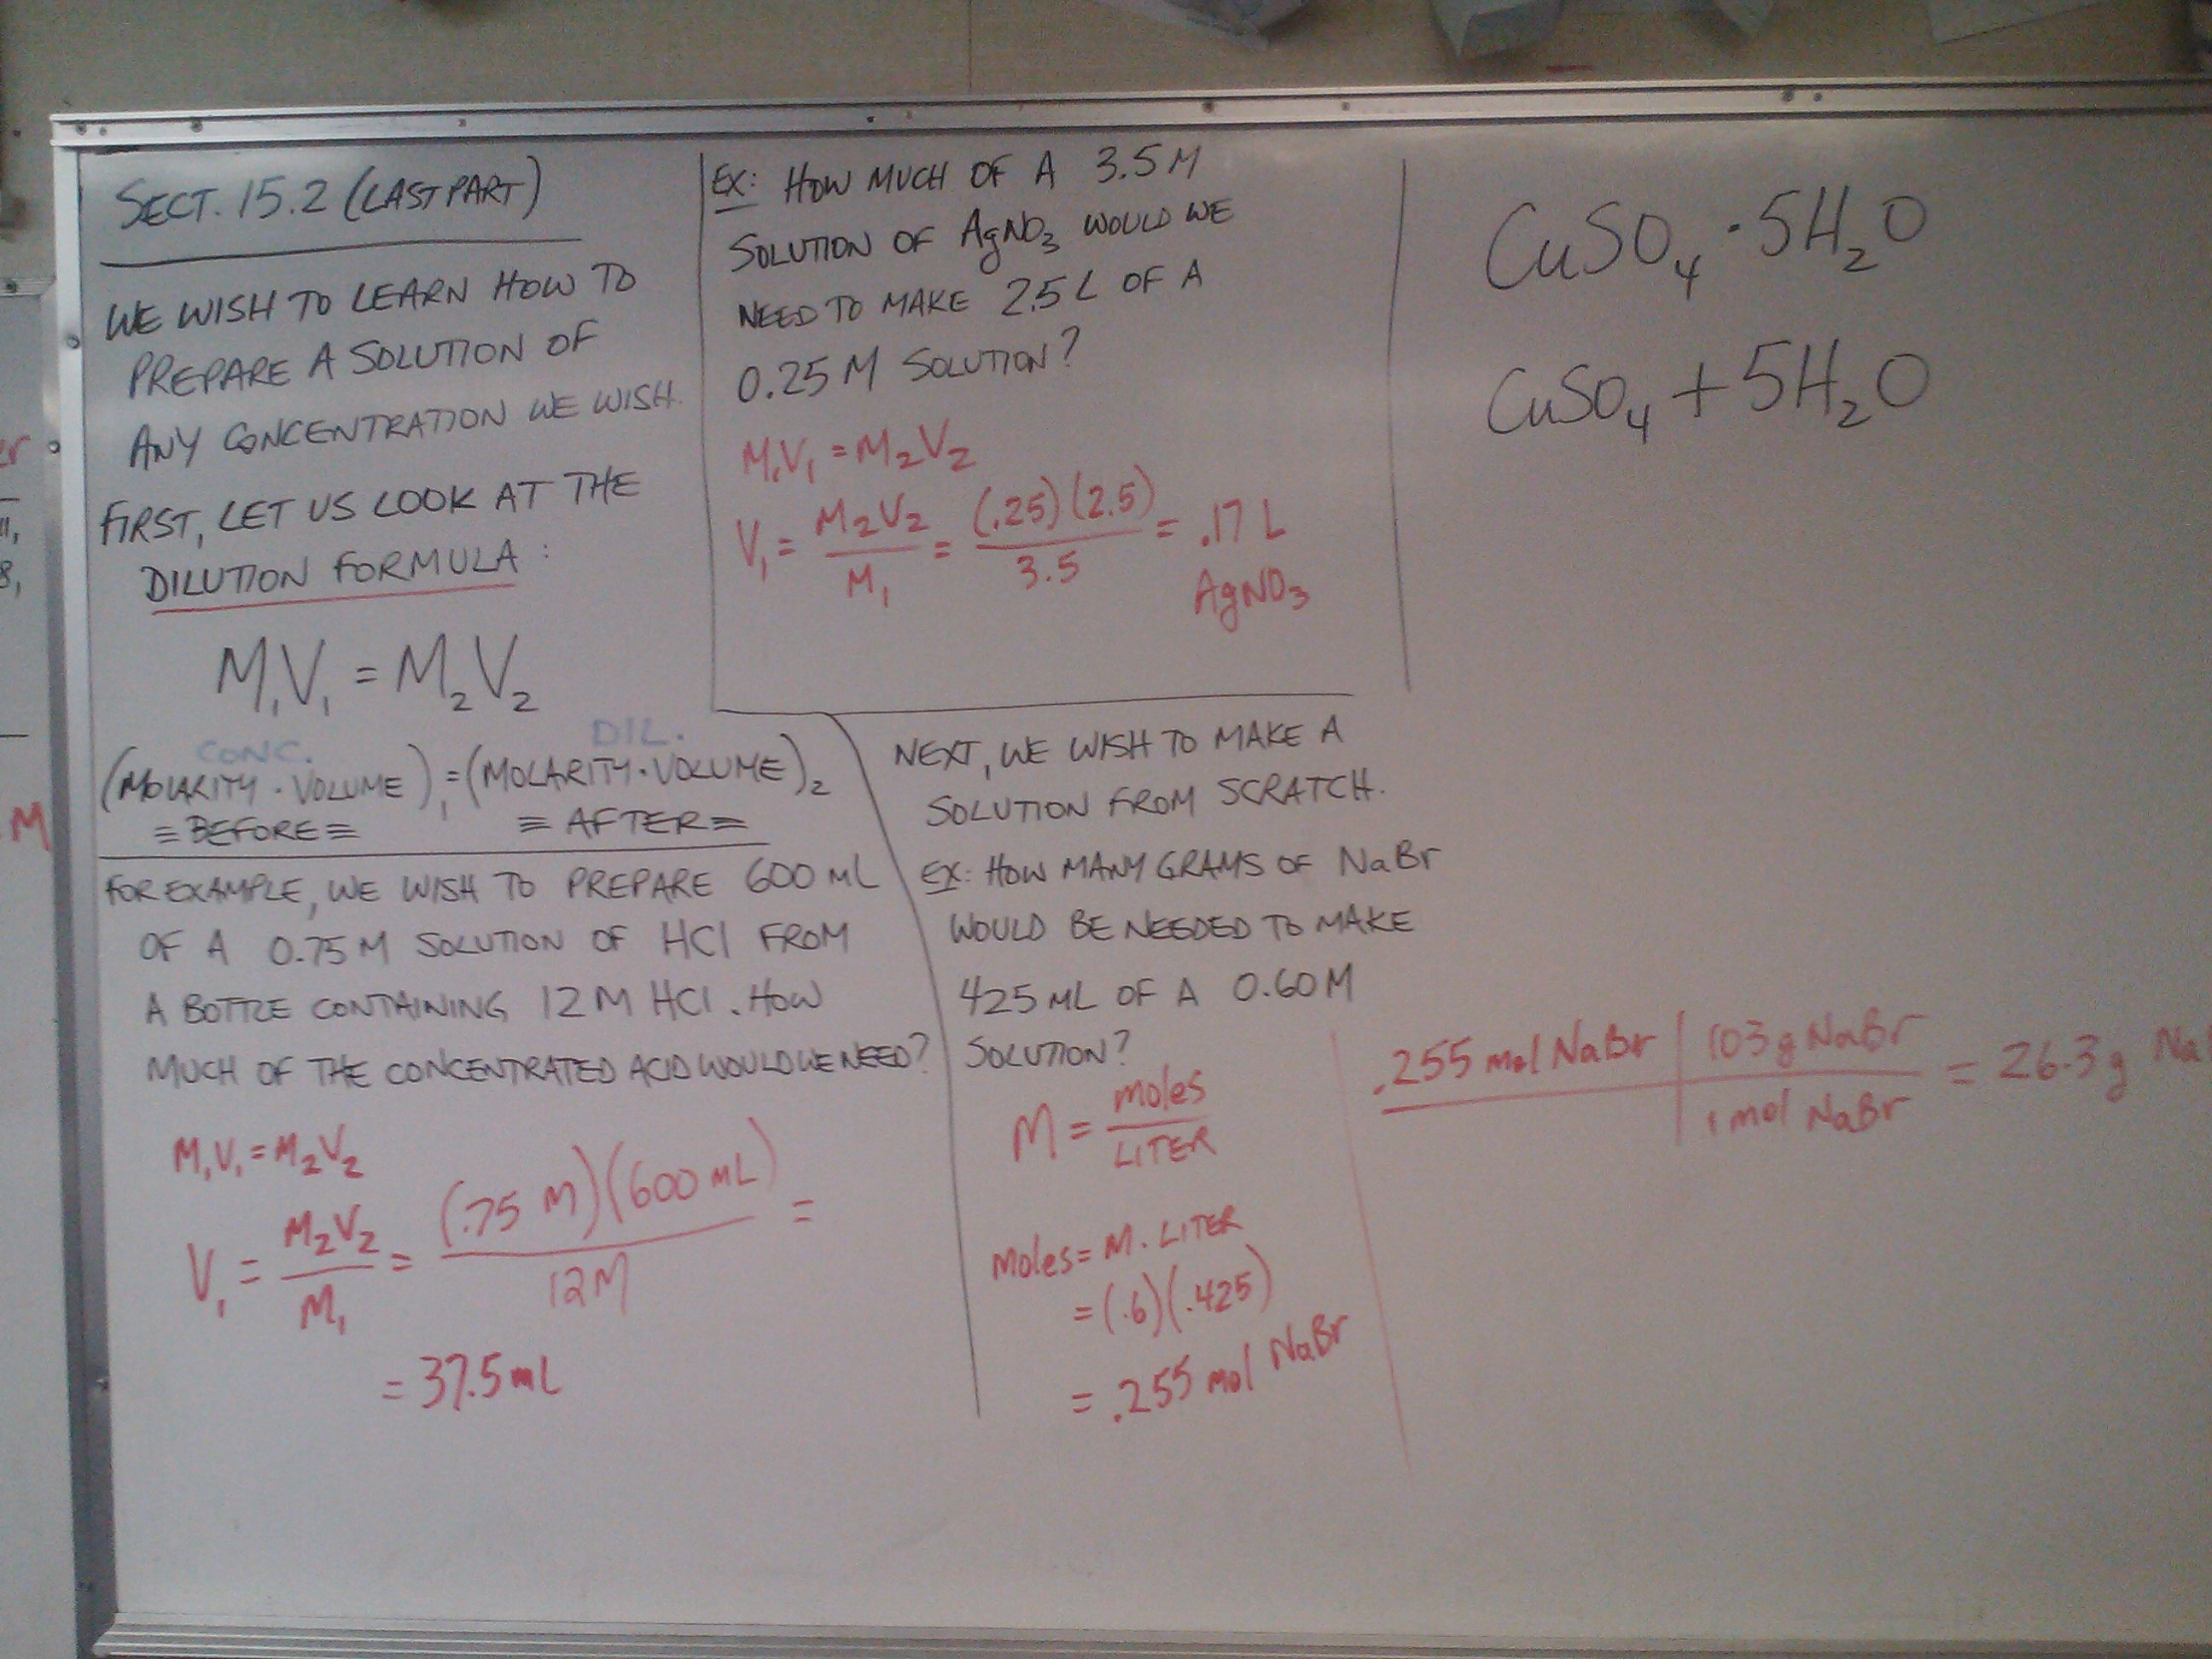 SECT. 15.2 (LAST PART)
WE WISH TO LEARN HOW TO
PREPARE A SOLUTION OF
ANY CONCENTRATION WE WISH.
FIRST, LET US LOOK AT THE
DILUTION FORMULA:
M₁V₁ = M₂V₂
CONC. DIL.
(MOLARITY · VOLUME)₁ = (MOLARITY · VOLUME)₂
≡ BEFORE ≡ ≡ AFTER ≡
FOR EXAMPLE, WE WISH TO PREPARE 600 mL
OF A 0.75 M SOLUTION OF HCl FROM
A BOTTLE CONTAINING 12 M HCl. HOW
MUCH OF THE CONCENTRATED ACID WOULD WE NEED?
M₁V₁ = M₂V₂
V₁ = M₂V₂/M₁ = (.75 M)(600 mL)/12 M =
= 37.5 mL
EX: HOW MUCH OF A 3.5 M
SOLUTION OF AgNO₃ WOULD WE
NEED TO MAKE 2.5 L OF A
0.25 M SOLUTION?
M₁V₁ = M₂V₂
V₁ = M₂V₂/M₁ = (.25)(2.5)/3.5 = .17 L
AgNO₃
NEXT, WE WISH TO MAKE A
SOLUTION FROM SCRATCH.
EX: HOW MANY GRAMS OF NaBr
WOULD BE NEEDED TO MAKE
425 mL OF A 0.60 M
SOLUTION?
M = moles/LITER
moles = M · LITER
= (.6)(.425)
= .255 mol NaBr
.255 mol NaBr | 103 g NaBr / 1 mol NaBr = 26.3 g Na
CuSO₄ · 5H₂O
CuSO₄ + 5H₂O
er
11,
8,
M